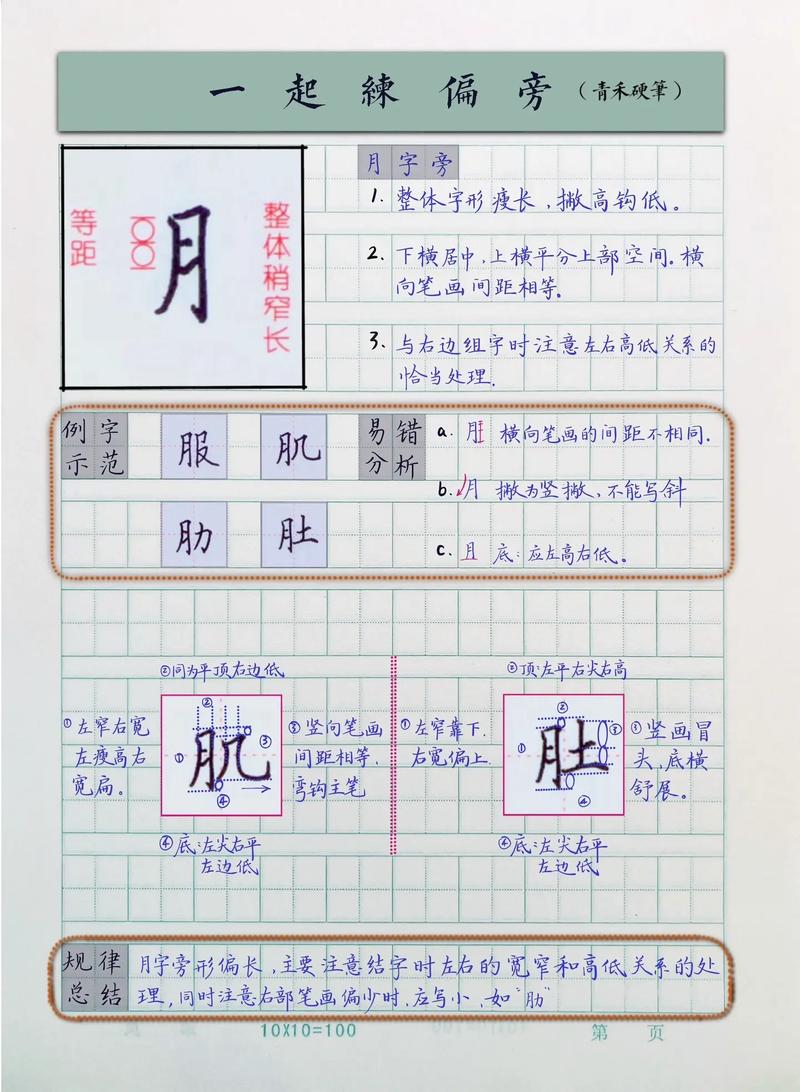 一起練偏旁（青禾硬筆）
等距
月
整体稍窄长
月字旁
1. 整体字形瘦长，撇高钩低。
2. 下横居中，上横平分上部空间。横
向笔画间距相等。
3. 与右边组字时注意左右高低关系的
恰当处理.
例字
示范
服 肌
肋 肚
易错
分析
a. 月 横向笔画的间距不相同.
b. 月 撇为竖撇，不能写斜
c. 且 底：应左高右低。
②同为平顶右边低
①左窄右宽
左瘦高右
宽扁。
①
②
肌
③
④
③竖向笔画
间距相等，
弯钩主笔
④底：左尖右平
左边低
②顶：左平右尖右高
①左窄靠下.
右宽偏上.
①
②
肚
③
④
③竖画冒
头，底横
舒展。
④底：左尖右平
左边低
规律
总结
月字旁形偏长，主要注意结字时左右的宽窄和高低关系的处
理，同时注意右部笔画偏少时，应写小，如“肋”
10X10=100
第 页